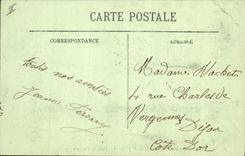 CARTE POSTALE
CORRESPONDANCE
ADRESSE
toutes nos amitiés
Jeanne
Madame Vachet
4 rue Charles de
Vergennes
Dijon
Côte d'Or